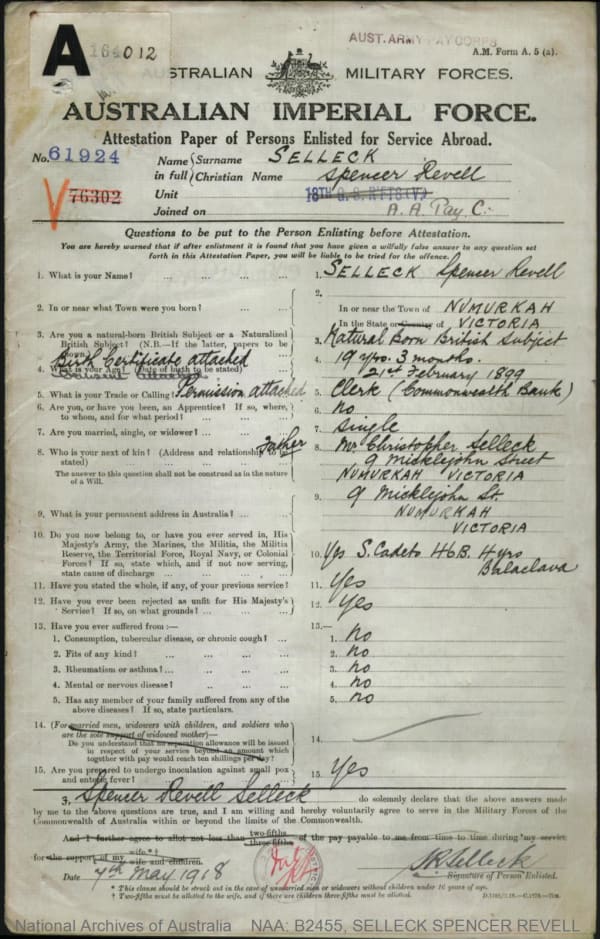 A
164012
AUST. ARMY PAY CORPS
A.M. Form A. 5 (a).
AUSTRALIAN MILITARY FORCES.
AUSTRALIAN IMPERIAL FORCE.
Attestation Paper of Persons Enlisted for Service Abroad.
No. 61924
76302
Name in full { Surname SELLECK
Christian Name Spencer Revell
Unit 18TH G. S. R'FTS (V)
Joined on A. A. Pay C.
Questions to be put to the Person Enlisting before Attestation.
You are hereby warned that if after enlistment it is found that you have given a wilfully false answer to any question set
forth in this Attestation Paper, you will be liable to be tried for the offence.
1. What is your Name? ... ... ... 1. SELLECK Spencer Revell
2. In or near what Town were you born? ... 2. In or near the Town of NUMURKAH
In the State or County of VICTORIA
3. Are you a natural-born British Subject or a Naturalized
British Subject? (N.B.—If the latter, papers to be
shown) 3. Natural Born British Subject
Birth Certificate attached
4. What is your Age? (Date of birth to be stated) 4. 19 yrs. 3 months.
Consent attached 21st February 1899
5. What is your Trade or Calling? Permission attached 5. Clerk (Commonwealth Bank)
6. Are you, or have you been, an Apprentice? If so, where,
to whom, and for what period? ... ... 6. No
7. Are you married, single, or widower? ... ... 7. Single
8. Who is your next of kin? (Address and relationship to be
stated) ... ... Father 8. Mr. Christopher Selleck
9 Micklejohn Street
NUMURKAH VICTORIA
The answer to this question shall not be construed as in the nature
of a Will.
9. What is your permanent address in Australia? ... ... 9. 9 Micklejohn St.
NUMURKAH
VICTORIA
10. Do you now belong to, or have you ever served in, His
Majesty's Army, the Marines, the Militia, the Militia
Reserve, the Territorial Force, Royal Navy, or Colonial
Forces? If so, state which, and if not now serving,
state cause of discharge ... ... ... 10. Yes S. Cadets 46B. 4yrs
Balaclava
11. Have you stated the whole, if any, of your previous service? 11. Yes
12. Have you ever been rejected as unfit for His Majesty's
Service? If so, on what grounds? ... ... 12. Yes
13. Have you ever suffered from:— 13.—
1. Consumption, tubercular disease, or chronic cough? ... 1. No
2. Fits of any kind? ... ... ... 2. No
3. Rheumatism or asthma? ... ... ... 3. No
4. Mental or nervous disease? ... ... 4. No
5. Has any member of your family suffered from any of the
above diseases? If so, state particulars. 5. No
14. (For married men, widowers with children, and soldiers who
are the sole support of widowed mother)—
Do you understand that no separation allowance will be issued
in respect of your service beyond an amount which
together with pay would reach ten shillings per day? 14.
15. Are you prepared to undergo inoculation against small pox
and enteric fever? ... ... ... 15. Yes
I, Spencer Revell Selleck do solemnly declare that the above answers made
by me to the above questions are true, and I am willing and hereby voluntarily agree to serve in the Military Forces of the
Commonwealth of Australia within or beyond the limits of the Commonwealth.
And I further agree to allot not less than two-fifths three-fifths of the pay payable to me from time to time during my service
for the support of my wife.*† wife and children.
Date 7th May 1918 SRSelleck
Signature of Person Enlisted.
* This clause should be struck out in the case of unmarried men or widowers without children under 16 years of age.
† Two-fifths must be allotted to the wife, and if there are children three-fifths must be allotted.
National Archives of Australia NAA: B2455, SELLECK SPENCER REVELL